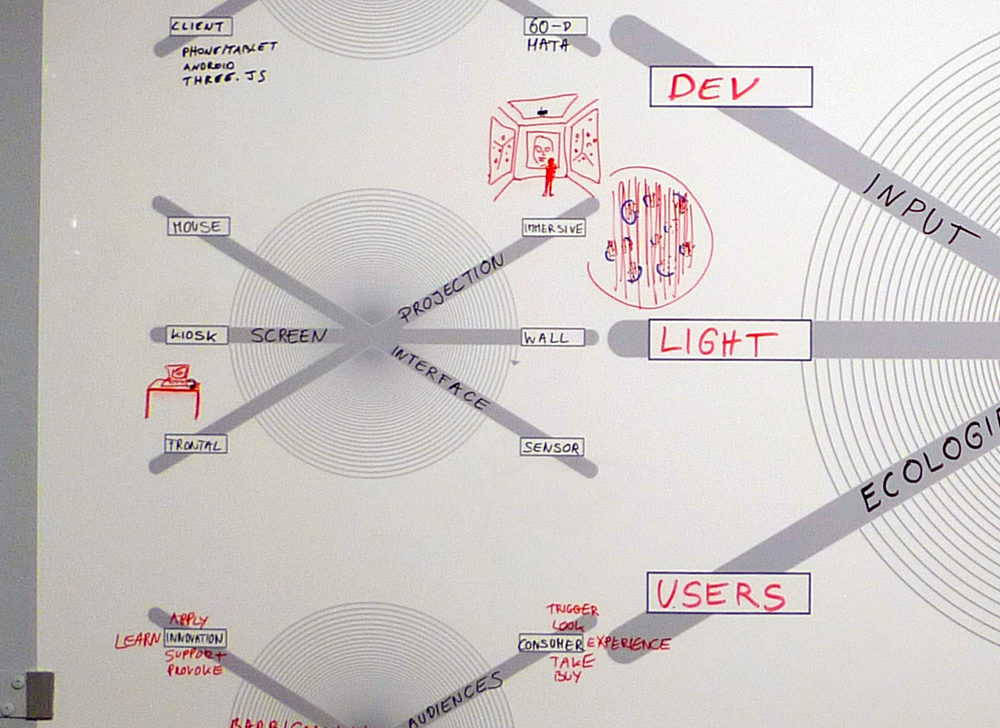 CLIENT
PHONE/TABLET
ANDROID
THREE.JS
60-D
MATA
DEV
INPUT
MOUSE
IMMERSIVE
PROJECTION
KIOSK
SCREEN
WALL
LIGHT
INTERFACE
FRONTAL
SENSOR
ECOLOGI
USERS
APPLY
LEARN INNOVATION
SUPPORT
PROVOKE
TRIGGER
LOOK
CONSUMER EXPERIENCE
TAKE
BUY
AUDIENCES